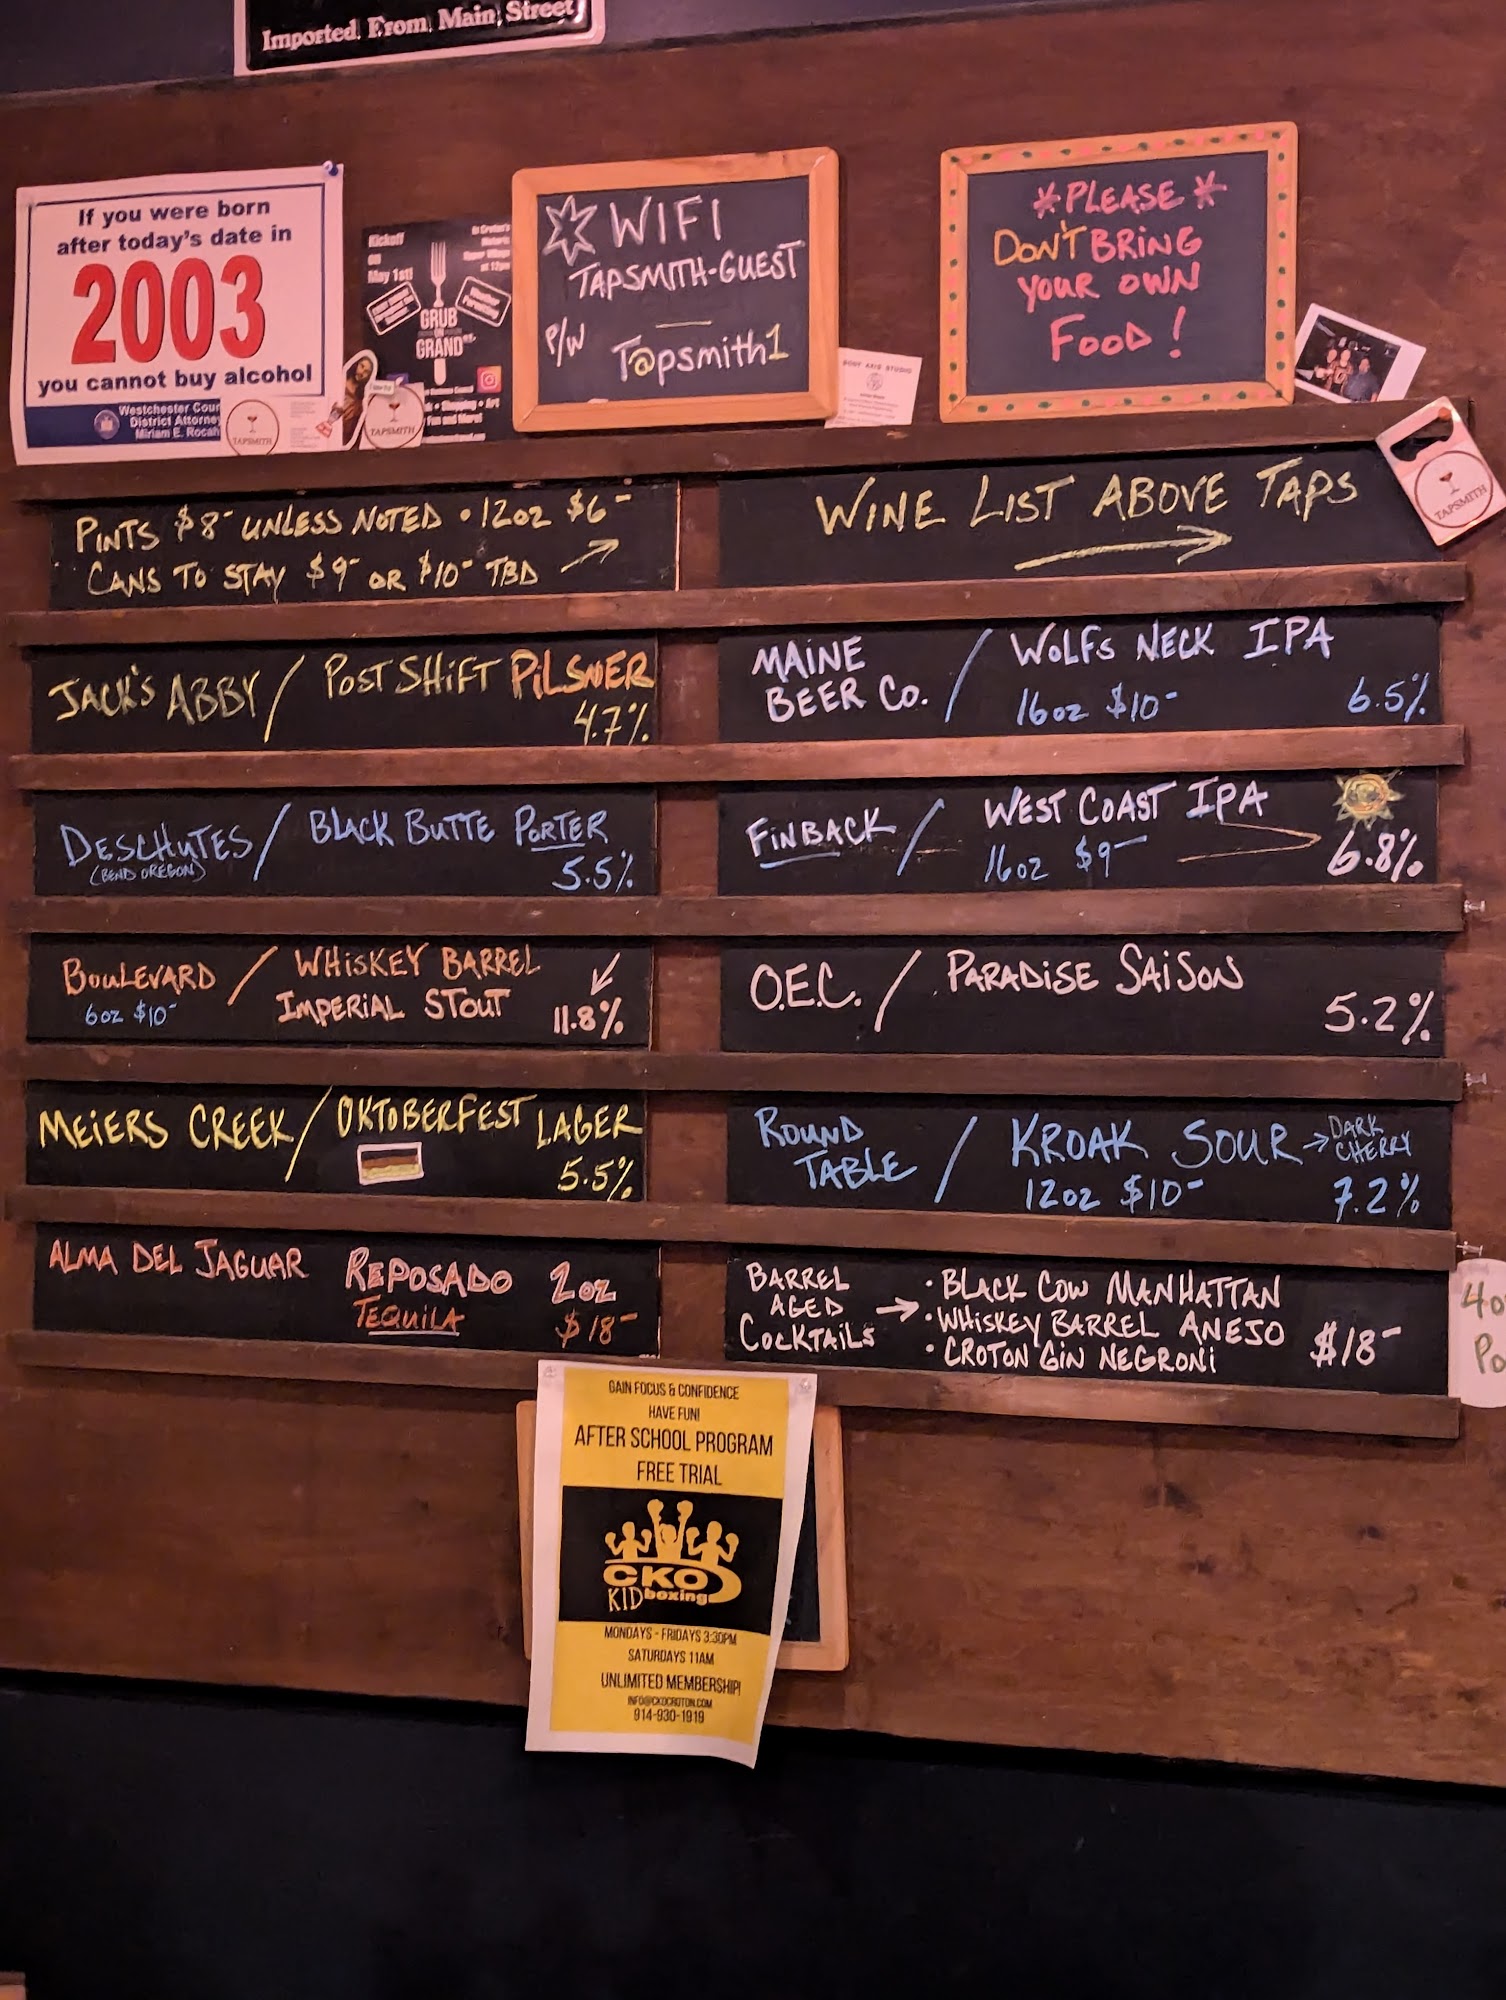 Imported. From. Main, Street
If you were born
after today's date in
2003
you cannot buy alcohol
Westchester Coun
District Attorney
Miriam E. Rocah
TAPSMITH
Kickoff
on
May 1st!
GRUB
ON
GRAND
TAPSMITH
WIFI
TAPSMITH-GUEST
P/W
T@psmith1
BODY AXIS STUDIO
*PLEASE*
DON'T BRING
YOUR OWN
FOOD!
TAPSMITH
PINTS $8- UNLESS NOTED • 12oz $6-
CANS TO STAY $9- OR $10- TBD
WINE LIST ABOVE TAPS
JACK'S ABBY / POST SHIFT PILSNER
4.7%
MAINE
BEER CO. / WOLFS NECK IPA
16oz $10- 6.5%
DESCHUTES / BLACK BUTTE PORTER
(BEND OREGON) 5.5%
FINBACK / WEST COAST IPA
16oz $9- 6.8%
BOULEVARD / WHISKEY BARREL
6oz $10- IMPERIAL STOUT 11.8%
O.E.C. / PARADISE SAISON
5.2%
MEIERS CREEK / OKTOBERFEST LAGER
5.5%
ROUND
TABLE / KROAK SOUR → DARK
CHERRY
12oz $10- 7.2%
ALMA DEL JAGUAR REPOSADO 2oz
TEQUILA $18-
BARREL
AGED
COCKTAILS →
• BLACK COW MANHATTAN
• WHISKEY BARREL ANEJO
• CROTON GIN NEGRONI
$18-
GAIN FOCUS & CONFIDENCE
HAVE FUN!
AFTER SCHOOL PROGRAM
FREE TRIAL
CKO
KID boxing
MONDAYS - FRIDAYS 3:30PM
SATURDAYS 11AM
UNLIMITED MEMBERSHIP!
INFO@CKOCROTON.COM
914-930-1919